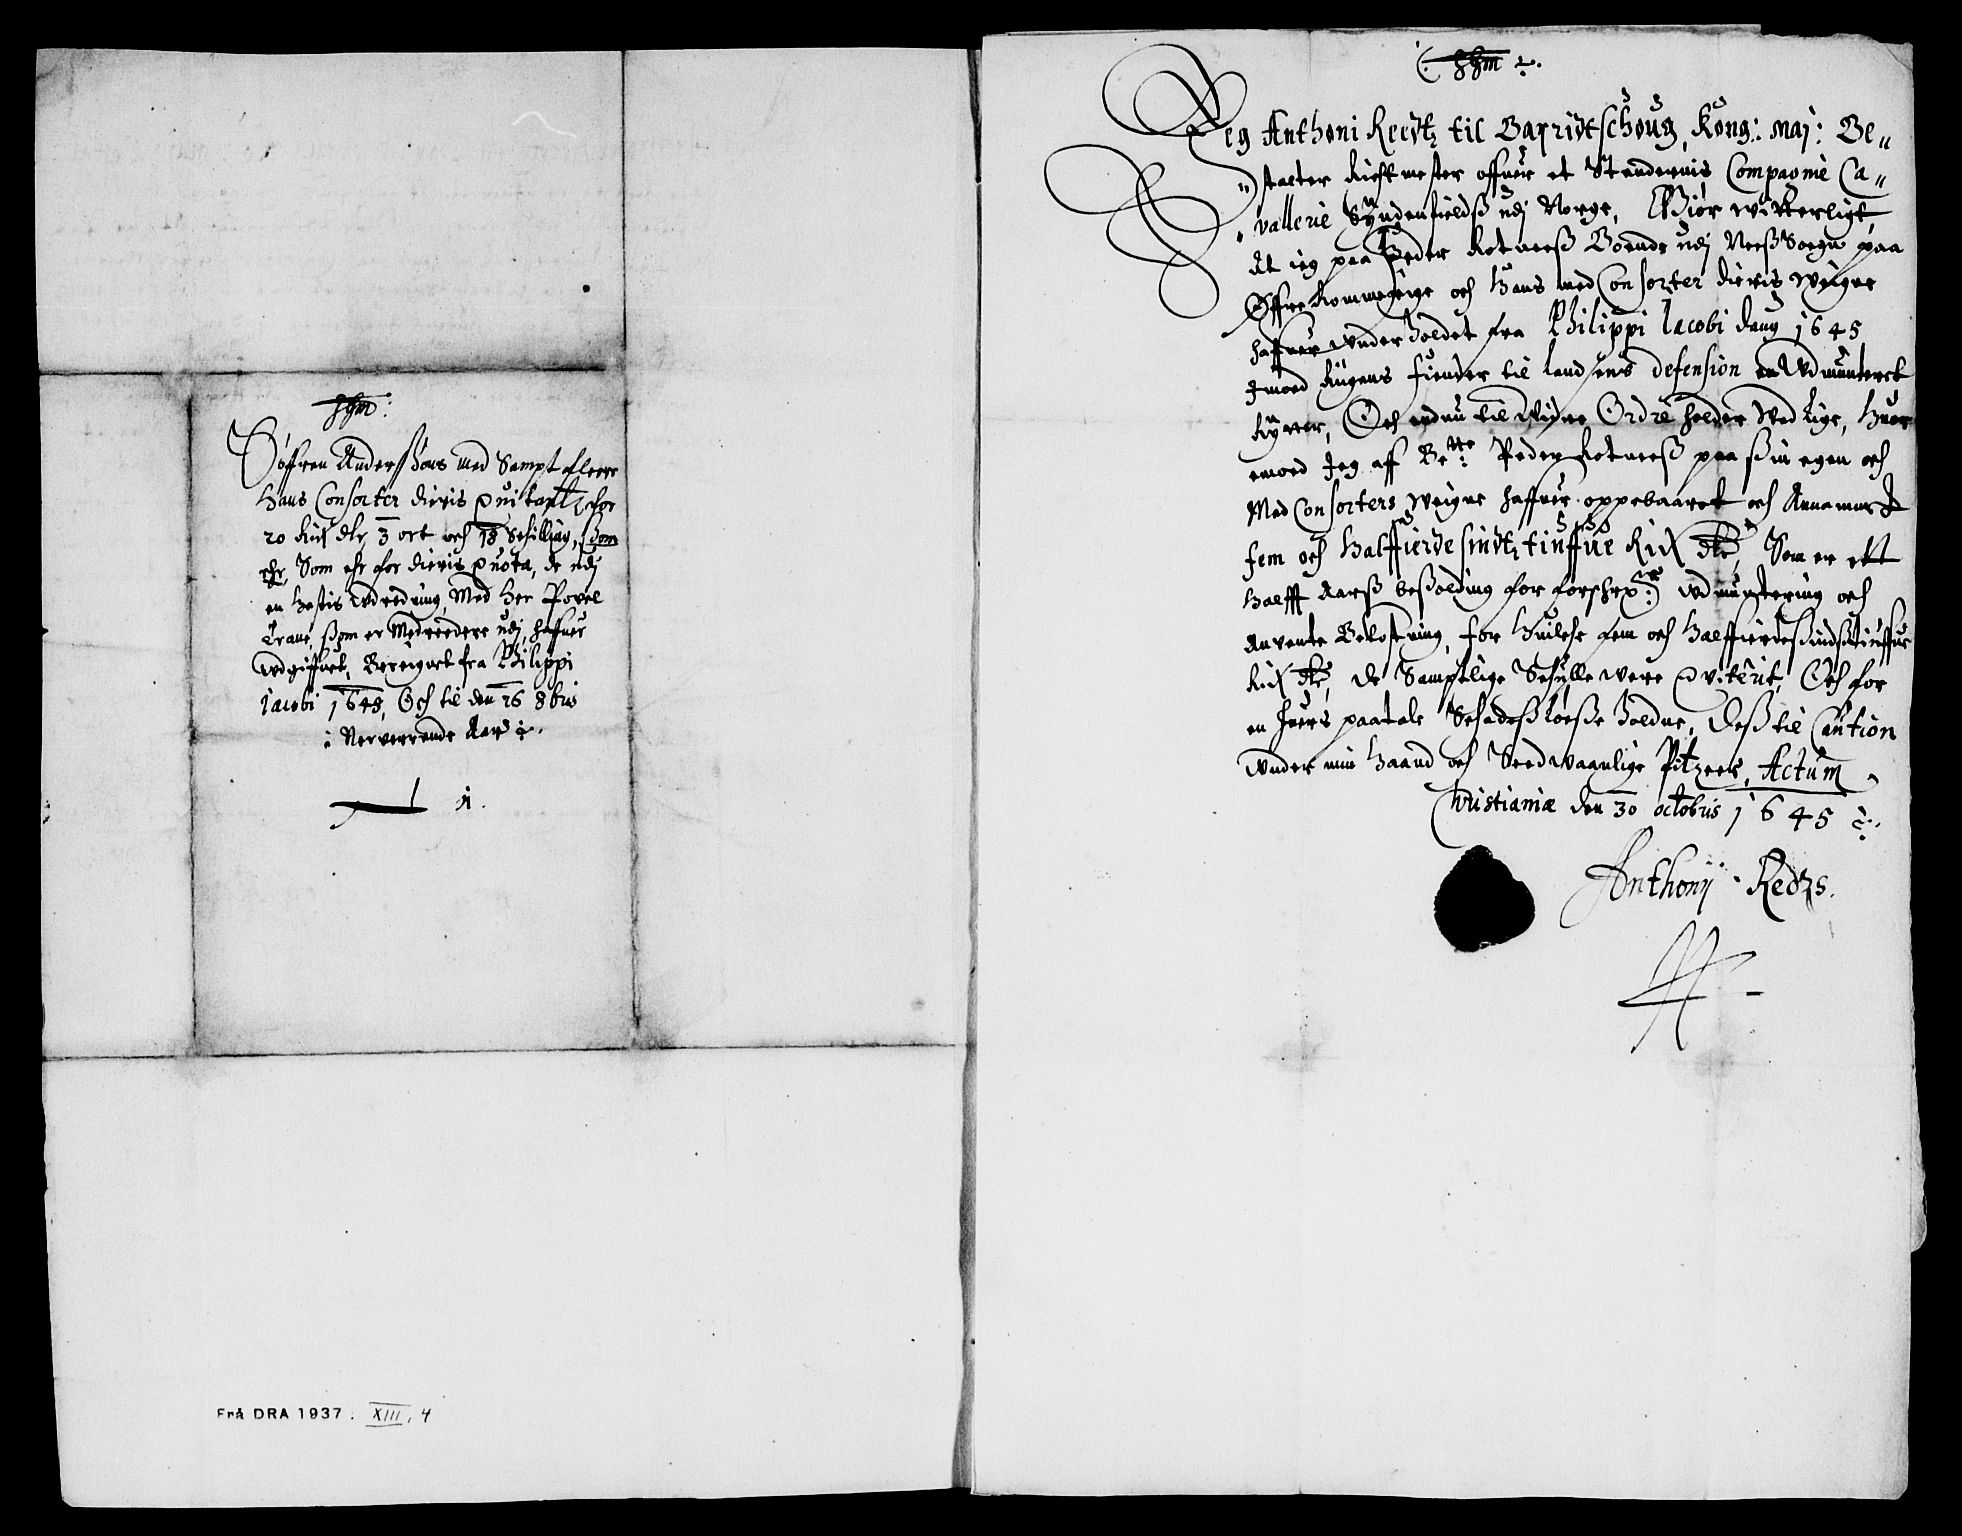 Søffren Anderssøns med Sampt fleere
Hans Consorter dieris quitantz for
20 Rix dlr 3 ort och 18 Schilling, ßom
ehr, Som ehr for dieris quota, de udj
en hestis udredning, Med Her Povel
Trane, ßom er Medreedere udj, haffuer
udgiffuet, Bereignet fra Philippi
Jacobi 1645, Och til den 26 8bris
Nerverende Aar
Frå DRA 1937. XIII, 4
Jeg Anthoni Reedtz til Barridtschoug, Kong: Maj: Be„
„stalter Rickmester offuer et Stendernis Compagnie Ca„
„vallerie Syndenfieldß udj Norge, Giør witterligt,
At ieg paa Peder Rotneeß Boende udj Neeß Sogn paa
Øffre Rommerige och Hans med Consorter dieris weigne
haffuer underholdet fra Philippi Jacobi daug 1645
Imod Rigens fiender til landsens defension en Udmunteret
Rytter, Och endnu til widre Ordre holder wed lige, Huor
emoed Jeg aff Be:te Peder Rotneeß paa ßin egen och
Med Consorters weigne haffuer oppebaaret och Annammet
fem och halffierdesindtztiuffue Rix dlr, Som er ett
halfft Aarß besolding for forschr: udmuntering och
Anvente Bekostning, for Huilche fem och halffierdesindßtiuffue
Rix dlr, de Samptlige Schulle were qviterit, Och for
en huers paatale Schadesløeße holdne, Deß til Caution
Under min Haand och Sedwaanlige Pitzeer, Actum
Christianiæ den 30 octobris 1645
Anthonij Redtzs.